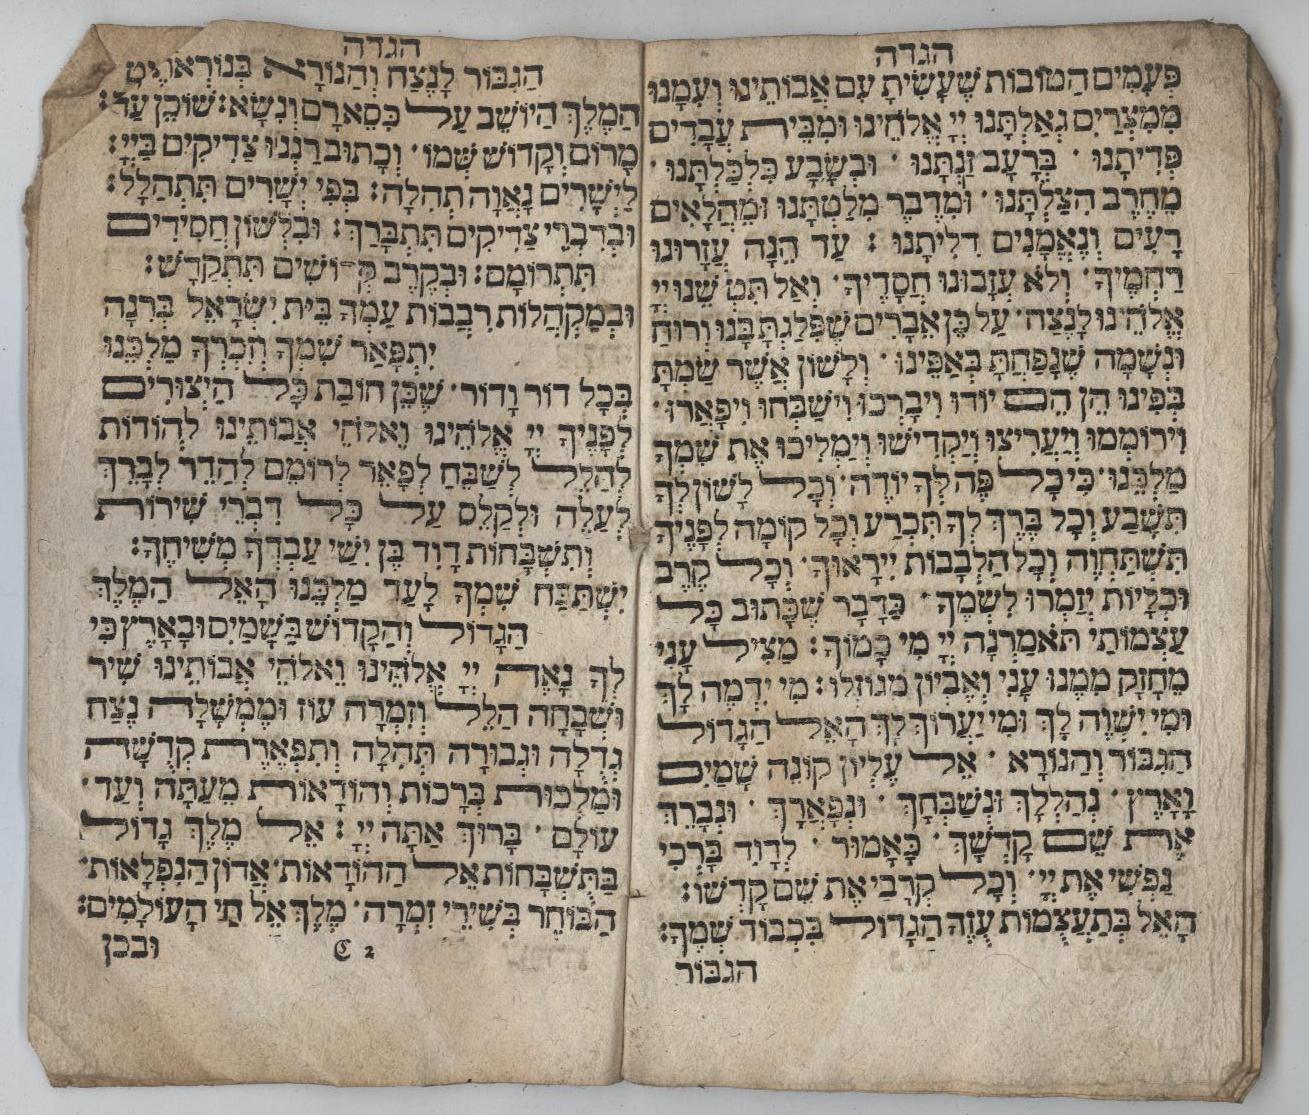 הגדה
פְּעָמִים הַטוֹבוֹת שֶׁעָשִׂיתָ עִם אֲבוֹתֵינוּ וְעִמָנוּ
מִמִצְרַיִם גְאַלְתָּנוּ יְיָ אֱלֹהֵינוּ וּמִבֵּית עֲבָדִים
פְּדִיתָנוּ · בְּרָעָב זַנְתָּנוּ · וּבְשָׂבָע כִּלְכַּלְתָּנוּ ·
מֵחֶרֶב הִצַלְתָּנוּ · וּמִדֶבֶר מִלַטְתָּנוּ וּמֵחֳלָאִים
רָעִים וְנֶאֱמָנִים דִלִיתָנוּ : עַד הֵנָה עֲזָרוּנוּ
רַחֲמֶיךָ · וְלֹא עֲזָבוּנוּ חֲסָדֶיךָ · וְאַל תִּטְשֵׁנוּ יְיָ
אֱלֹהֵינוּ לָנֶצַח · עַל כֵּן אֵבָרִים שֶׁפִּלַגְתָּ בָּנוּ וְרוּחַ
וּנְשָׁמָה שֶׁנָפַחְתָּ בְּאַפֵּינוּ · וְלָשׁוֹן אֲשֶׁר שַׂמְתָּ
בְּפִינוּ הֵן הֵם יוֹדוּ וִיבָרְכוּ וִישַׁבְּחוּ וִיפָאֲרוּ ·
וִירוֹמְמוּ וְיַעֲרִיצוּ וְיַקְדִישׁוּ וְיַמְלִיכוּ אֶת שִׁמְךָ
מַלְכֵּנוּ · כִּי כָל פֶּה לְךָ יוֹדֶה · וְכָל לָשׁוֹן לְךָ
תִּשָׁבַע וְכָל בֶּרֶךְ לְךָ תִּכְרַע וְכָל קוֹמָה לְפָנֶיךָ
תִּשְׁתַּחֲוֶה וְכָל הַלְבָבוֹת יִירָאוּךָ · וְכָל קֶרֶב
וּכְלָיוֹת יְזַמְרוּ לִשְׁמֶךָ · כַּדָבָר שֶׁכָּתוּב כָּל
עַצְמוֹתַי תֹּאמַרְנָה יְיָ מִי כָמוֹךָ : מַצִיל עָנִי
מֵחָזָק מִמֶנוּ עָנִי וְאֶבְיוֹן מִגוֹזְלוֹ : מִי יִדְמֶה לָךְ
וּמִי יִשְׁוֶה לָךְ וּמִי יַעֲרוֹךְ לָךְ הָאֵל הַגָדוֹל
הַגִבּוֹר וְהַנוֹרָא · אֵל עֶלְיוֹן קוֹנֵה שָׁמַיִם
וָאָרֶץ · נְהַלֶלָךְ וּנְשַׁבֵּחָךְ · וּנְפָאֲרָךְ · וּנְבָרֵךְ
אֶת שֵׁם קָדְשָׁךְ · כָּאָמוּר · לְדָוִד בָּרְכִי
נַפְשִׁי אֶת יְיָ · וְכָל קְרָבַי אֶת שֵׁם קָדְשׁוֹ :
הָאֵל בְּתַעֲצֻמוֹת עֻזֶךָ הַגָדוֹל בִּכְבוֹד שְׁמֶךָ :
הגבור
הגדה
הַגִבּוֹר לָנֶצַח וְהַנוֹרָא בְּנוֹרְאוֹתֶיךָ
הַמֶלֶךְ הַיוֹשֵׁב עַל כִּסֵא רָם וְנִשָׂא : שׁוֹכֵן עַד :
מָרוֹם וְקָדוֹשׁ שְׁמוֹ · וְכָתוּב רַנְנוּ צַדִיקִים בַּיְיָ :
לַיְשָׁרִים נָאֲוָה תְהִלָה : בְּפִי יְשָׁרִים תִּתְהַלָל :
וּבְדִבְרֵי צַדִיקִים תִּתְבָּרַךְ : וּבִלְשׁוֹן חֲסִידִים
תִּתְרוֹמָם : וּבְקֶרֶב קְדוֹשִׁים תִּתְקַדָשׁ :
וּבְמַקְהֲלוֹת רִבְבוֹת עַמְךָ בֵּית יִשְׂרָאֵל בְּרִנָה
יִתְפָּאֵר שִׁמְךָ וְזִכְרְךָ מַלְכֵּנוּ
בְּכָל דוֹר וָדוֹר · שֶׁכֵּן חוֹבַת כָּל הַיְצוּרִים
לְפָנֶיךָ יְיָ אֱלֹהֵינוּ וֵאלֹהֵי אֲבוֹתֵינוּ לְהוֹדוֹת
לְהַלֵל לְשַׁבֵּחַ לְפָאֵר לְרוֹמֵם לְהַדֵר לְבָרֵךְ
לְעַלֵה וּלְקַלֵס עַל כָּל דִבְרֵי שִׁירוֹת
וְתִשְׁבָּחוֹת דָוִד בֶּן יִשַׁי עַבְדְךָ מְשִׁיחֶךָ :
יִשְׁתַּבַּח שִׁמְךָ לָעַד מַלְכֵּנוּ הָאֵל הַמֶלֶךְ
הַגָדוֹל וְהַקָדוֹשׁ בַּשָׁמַיִם וּבָאָרֶץ כִּי
לְךָ נָאֶה יְיָ אֱלֹהֵינוּ וֵאלֹהֵי אֲבוֹתֵינוּ שִׁיר
וּשְׁבָחָה הַלֵל וְזִמְרָה עוֹז וּמֶמְשָׁלָה נֶצַח
גְדֻלָה וּגְבוּרָה תְּהִלָה וְתִפְאֶרֶת קְדֻשָׁה
וּמַלְכוּת בְּרָכוֹת וְהוֹדָאוֹת מֵעַתָּה וְעַד ·
עוֹלָם · בָּרוּךְ אַתָּה יְיָ : אֵל מֶלֶךְ גָדוֹל
בַּתִּשְׁבָּחוֹת אֵל הַהוֹדָאוֹת · אֲדוֹן הַנִפְלָאוֹת ·
הַבּוֹחֵר בְּשִׁירֵי זִמְרָה · מֶלֶךְ אֵל חַי הָעוֹלָמִים :
C 2 ובכן